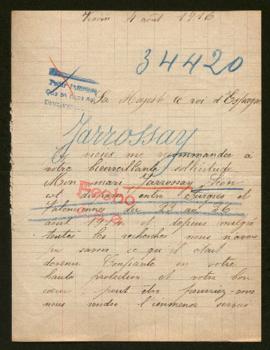 4 août 1916
34420
Sa Majesté le roi d'Espagne
Jarrossay
viens me recommander à
votre bienveillante sollicitude
Mon mari Jarrossay Léon
est disparu entre Jurques et
Valenciennes du 24 au 26
août 1914 et depuis malgré
toutes les recherches nous n'avons
pu savoir ce qu'il était
devenu. Confiante en votre
haute protection et votre bon
cœur peut être pourriez-vous
nous rendre l'immense service